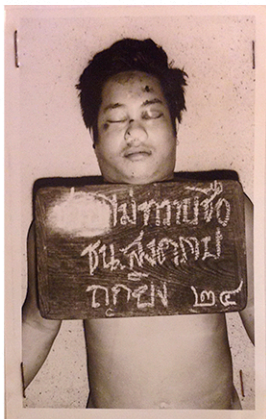 ไม่ทราบชื่อ
ชน.สงคราม
ถูกยิง ๒๔